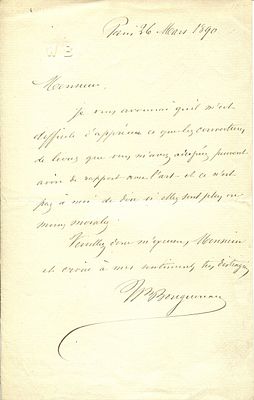 WB
Paris 26 Mars 1890
Monsieur,
Je vous avouerai qu'il m'est
difficile d'apprécier ce que les couvertures
de livres que vous m'avez adressées peuvent
avoir de rapport avec l'art et ce n'est
pas à moi de dire si elles sont plus ou
moins morales.
Veuillez donc m'excuser, Monsieur
et croire à mes sentiments très distingués
W Bouguereau